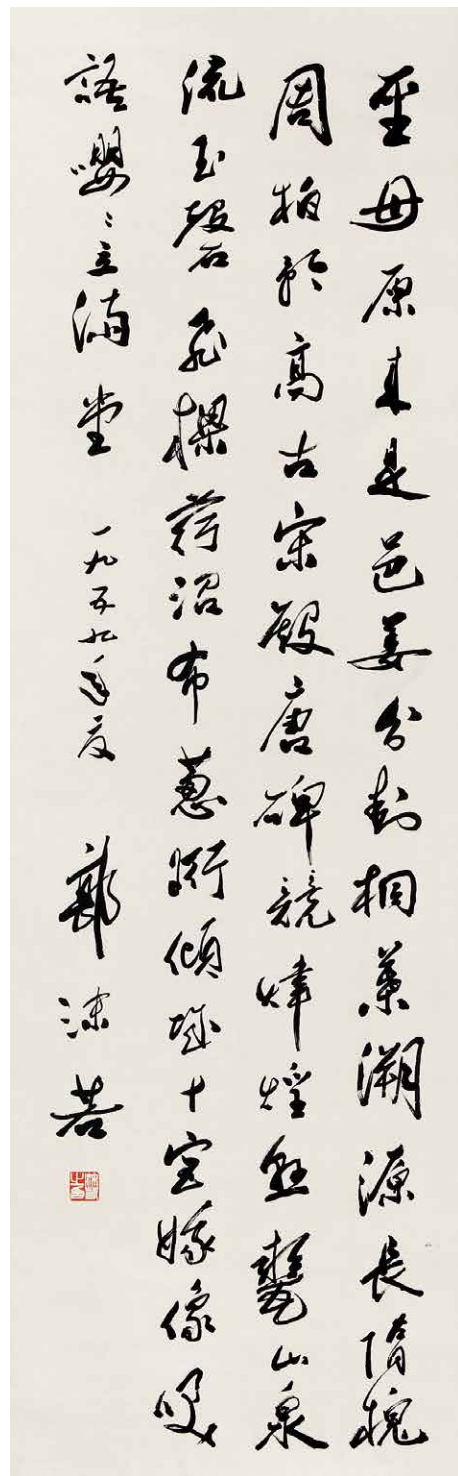 聖母原來是邑姜分封桐葉溯源長隋槐
周柏矜高古宋殿唐碑競煒煌懸甕山泉
流玉磬飛樑荷沼布蔥珩傾城十宮娥像咲
語嚶〻立滿堂 一九五九年夏 郭沫若